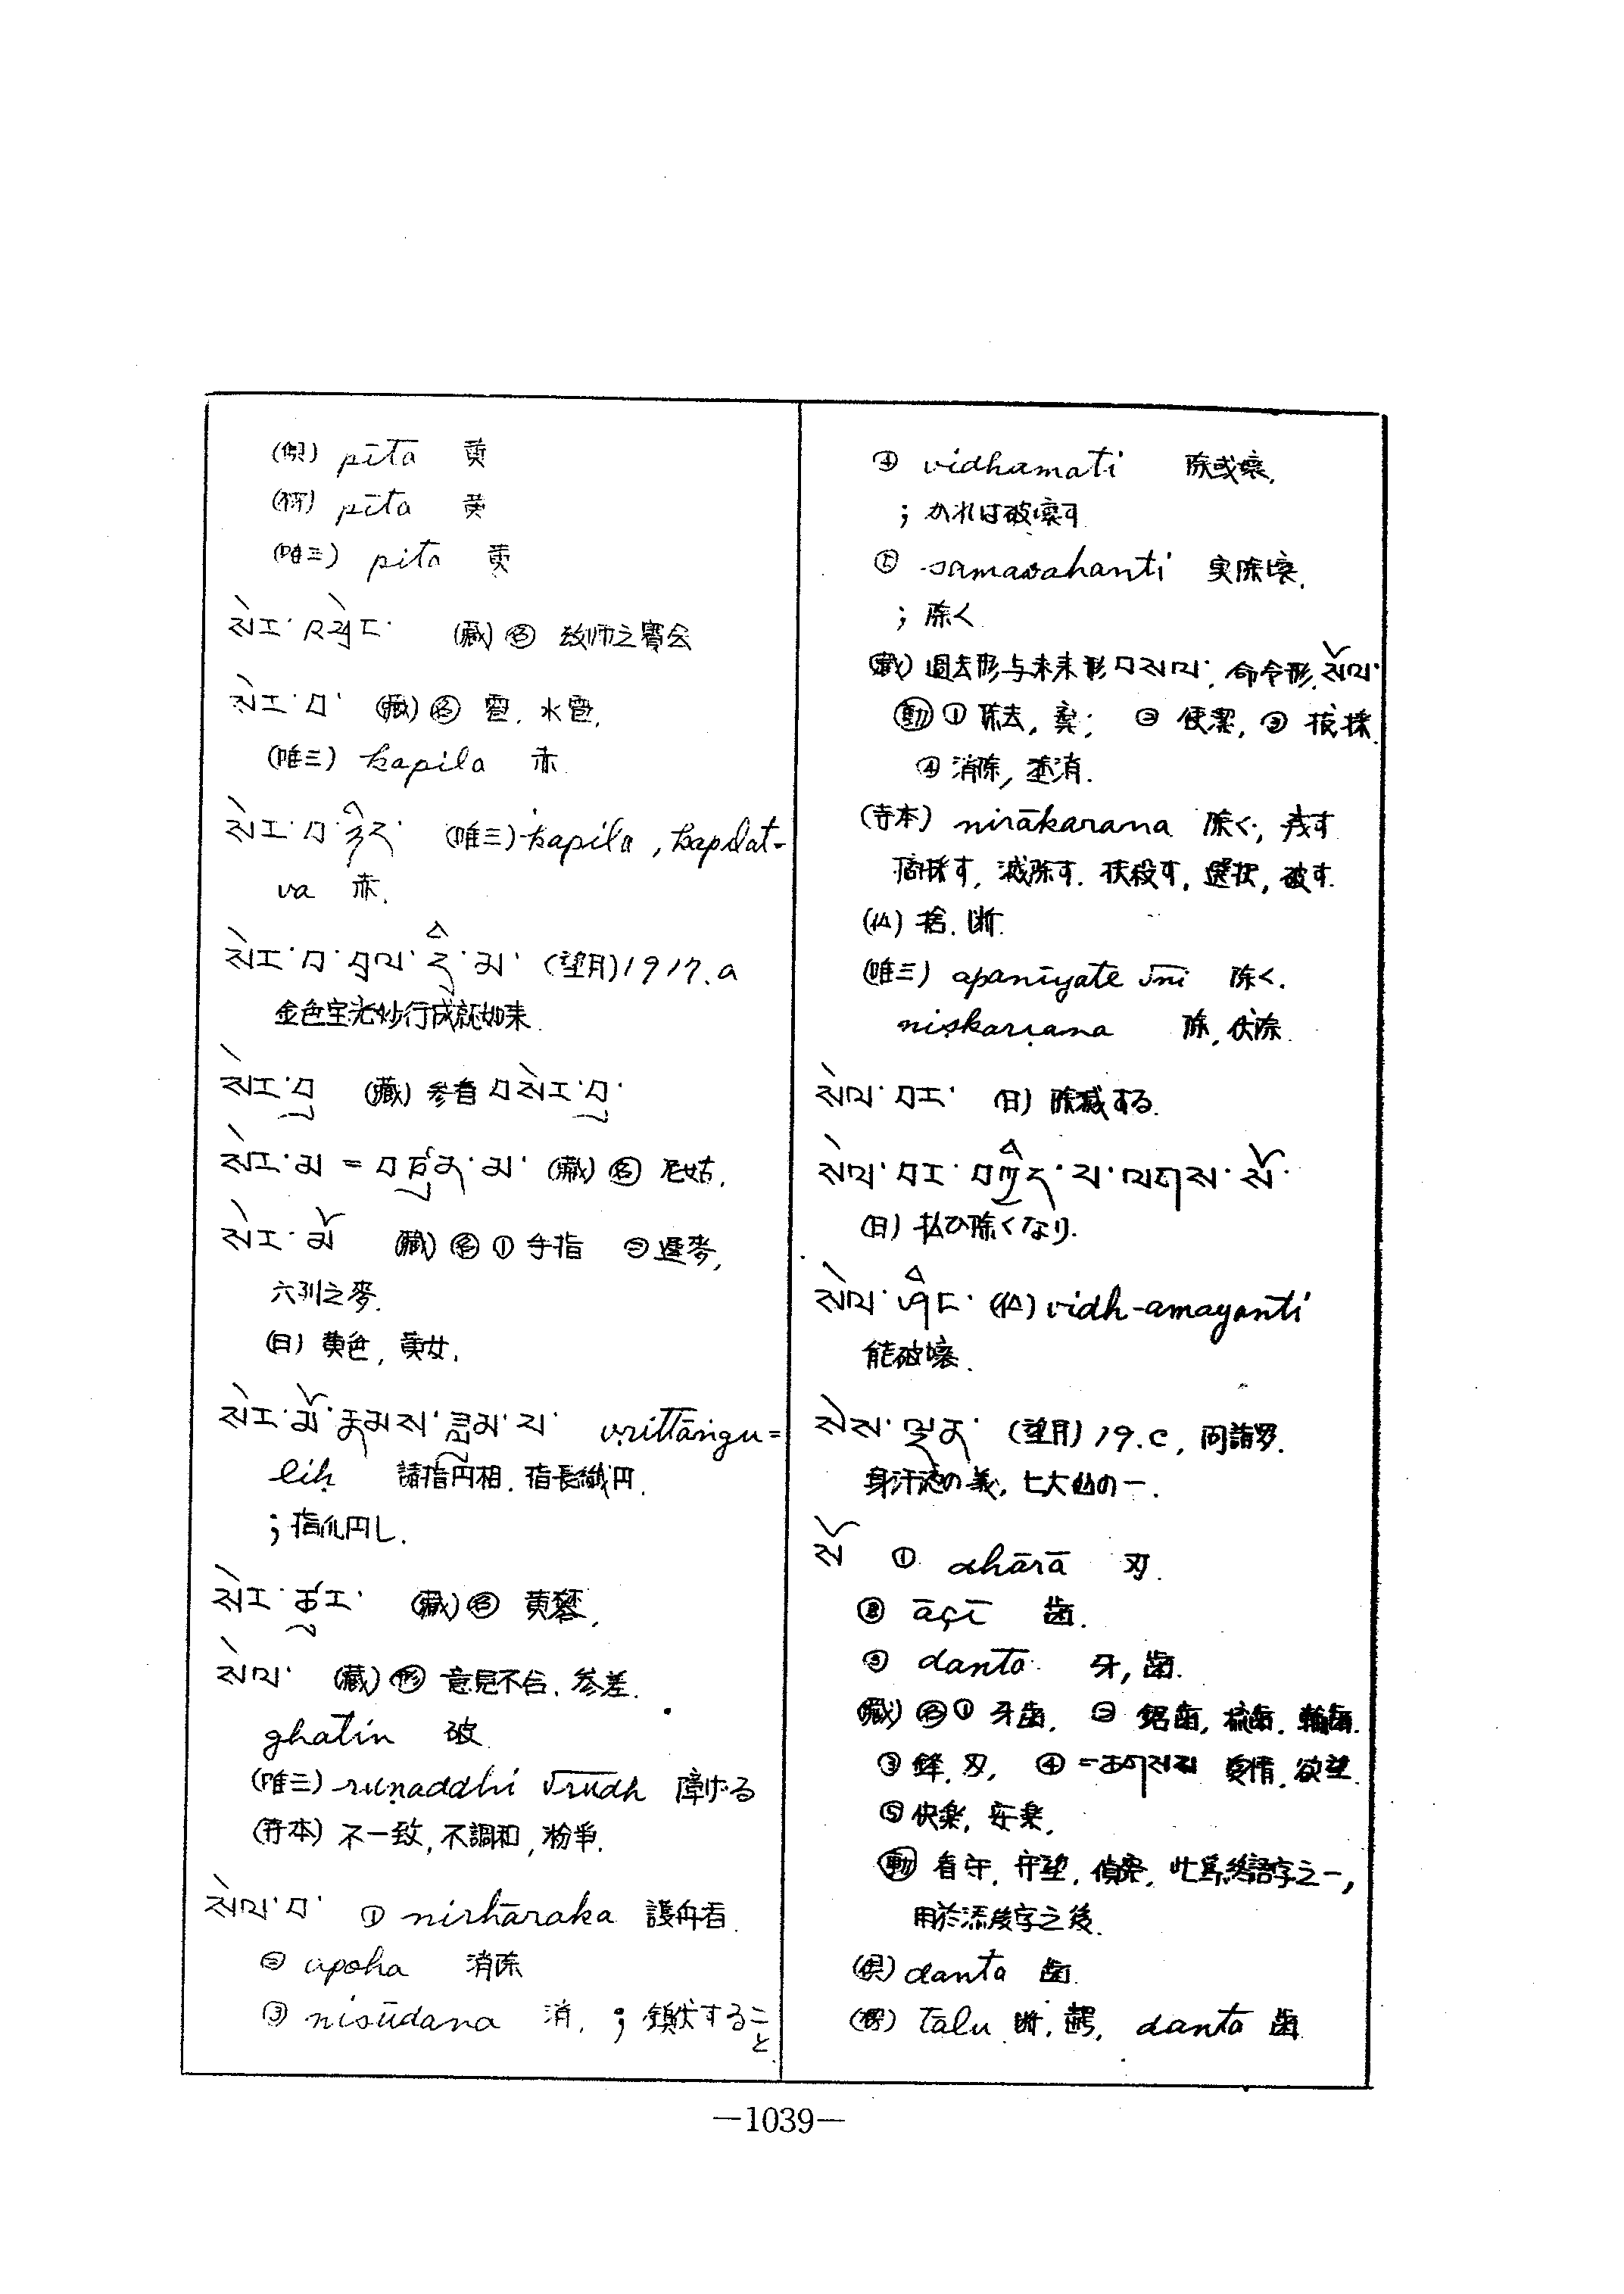 (倶) pīta 黄
(稱) pīta 黄
(唯三) pīta 黄
སེར་འབྲེང་ (藏) 名 教师之宴会
སེར་བ་ (藏) 名 雹, 水雹,
(唯三) kapila 赤
སེར་བ་ཉིད་ (唯三) kapila, kapilat-
va 赤.
སེར་བ་ དྲི་མ་ (望月) 1917.a
金色宝光妙行成就如来.
སེར་བུ (藏) 参看 བསེར་བུ་
སེར་མ = བཙུན་མ་ (藏) 名 尼姑.
སེར་མོ (藏) 名 ① 手指 ② 遅麥,
六列之麥.
(日) 黄色, 黄女.
སེར་མོ་རྣམས་ཟླུམ་པ་ vṛittāngu=
liḥ 諸指円相. 指長纖円.
; 指爪円し.
སེར་ཚུར་ (藏) 名 黄礬,
སེལ་ (藏) 形 意見不合, 参差.
ghatin 破
(唯三) ruṇaddhi √rudh 障げる
(寺本) 不一致, 不調和, 粉争.
སེལ་བ་ ① nirhāraka 護舟者.
② apoha 消除
③ nisūdana 消. ; 鎮伏するこ
と.
④ vidhamati 除或壊.
; かれは破壊す
⑤ samavahanti 実除壊.
; 除く
(藏) 過去形与未来形 བསལ་, 命令形. སོལ་
動 ① 除去, 棄; ② 使潔, ③ 拔探
④ 消除, 消.
(寺本) nirākarana 除く, 残す
摘採す, 滅除す. 伏殺す, 選択, 破す.
(仏) 捨. 断.
(唯三) apanīyate √nī 除く.
niṣkarṣana 除, 伏除.
སེལ་བར་ (日) 除滅する.
སེལ་བར་བགྱིད་པ་ལགས་སོ་
(日) 私ひ除くなり.
སེལ་ཤིང་ (仏) vidh-amayanti
能破壊.
སེས་ལྡན་ (望月) 19.c, 阿詣罗.
身汗液の義, 七大仙の一.
སོ ① dhārā 刃.
② āçī 歯.
③ danta 牙, 歯.
(藏) 名 ① 牙歯. ② 鋸歯, 梳歯. 輪歯.
③ 鋒. 刃, ④ =ཆགས 爱情. 欲望.
⑤ 快楽, 安楽.
動 看守, 守望, 偵察. 此爲終語字之一,
用於添後字之後.
(倶) danta 歯.
talu 断. 齶, danta 歯
—1039—